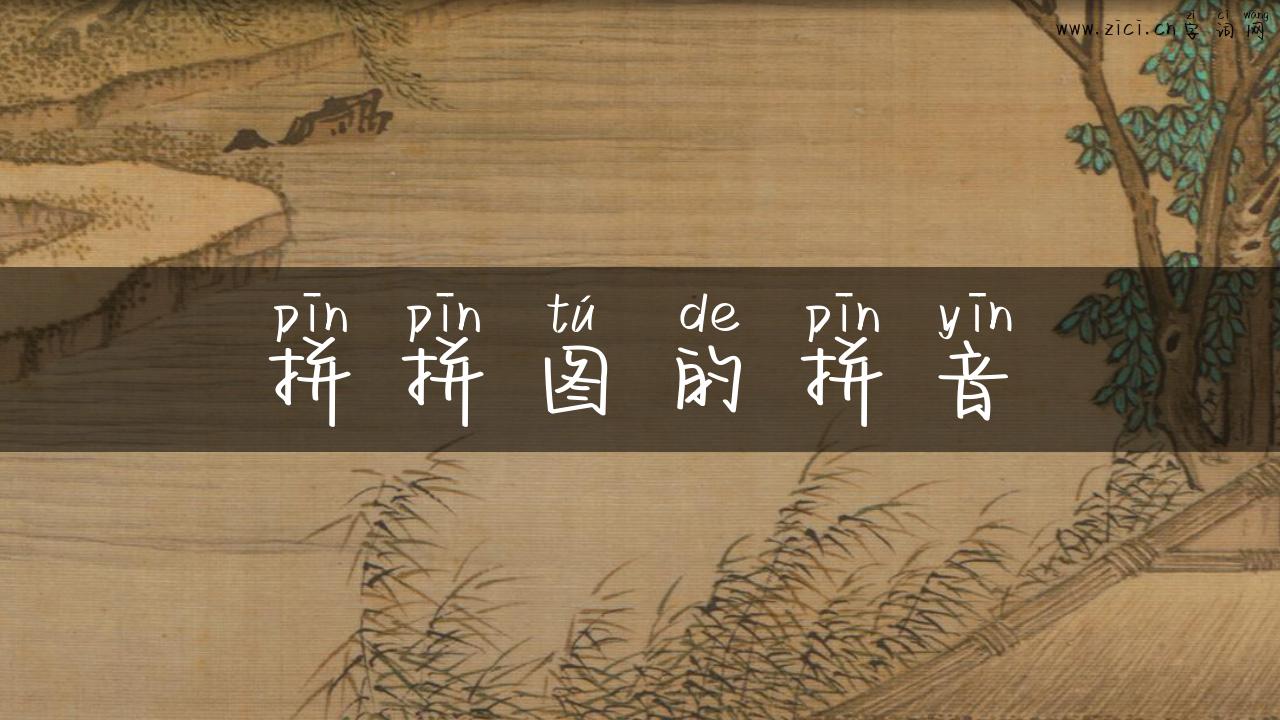 zì cí wǎng
www.zici.cn字词网
pīn pīn tú de pīn yīn
拼拼图的拼音